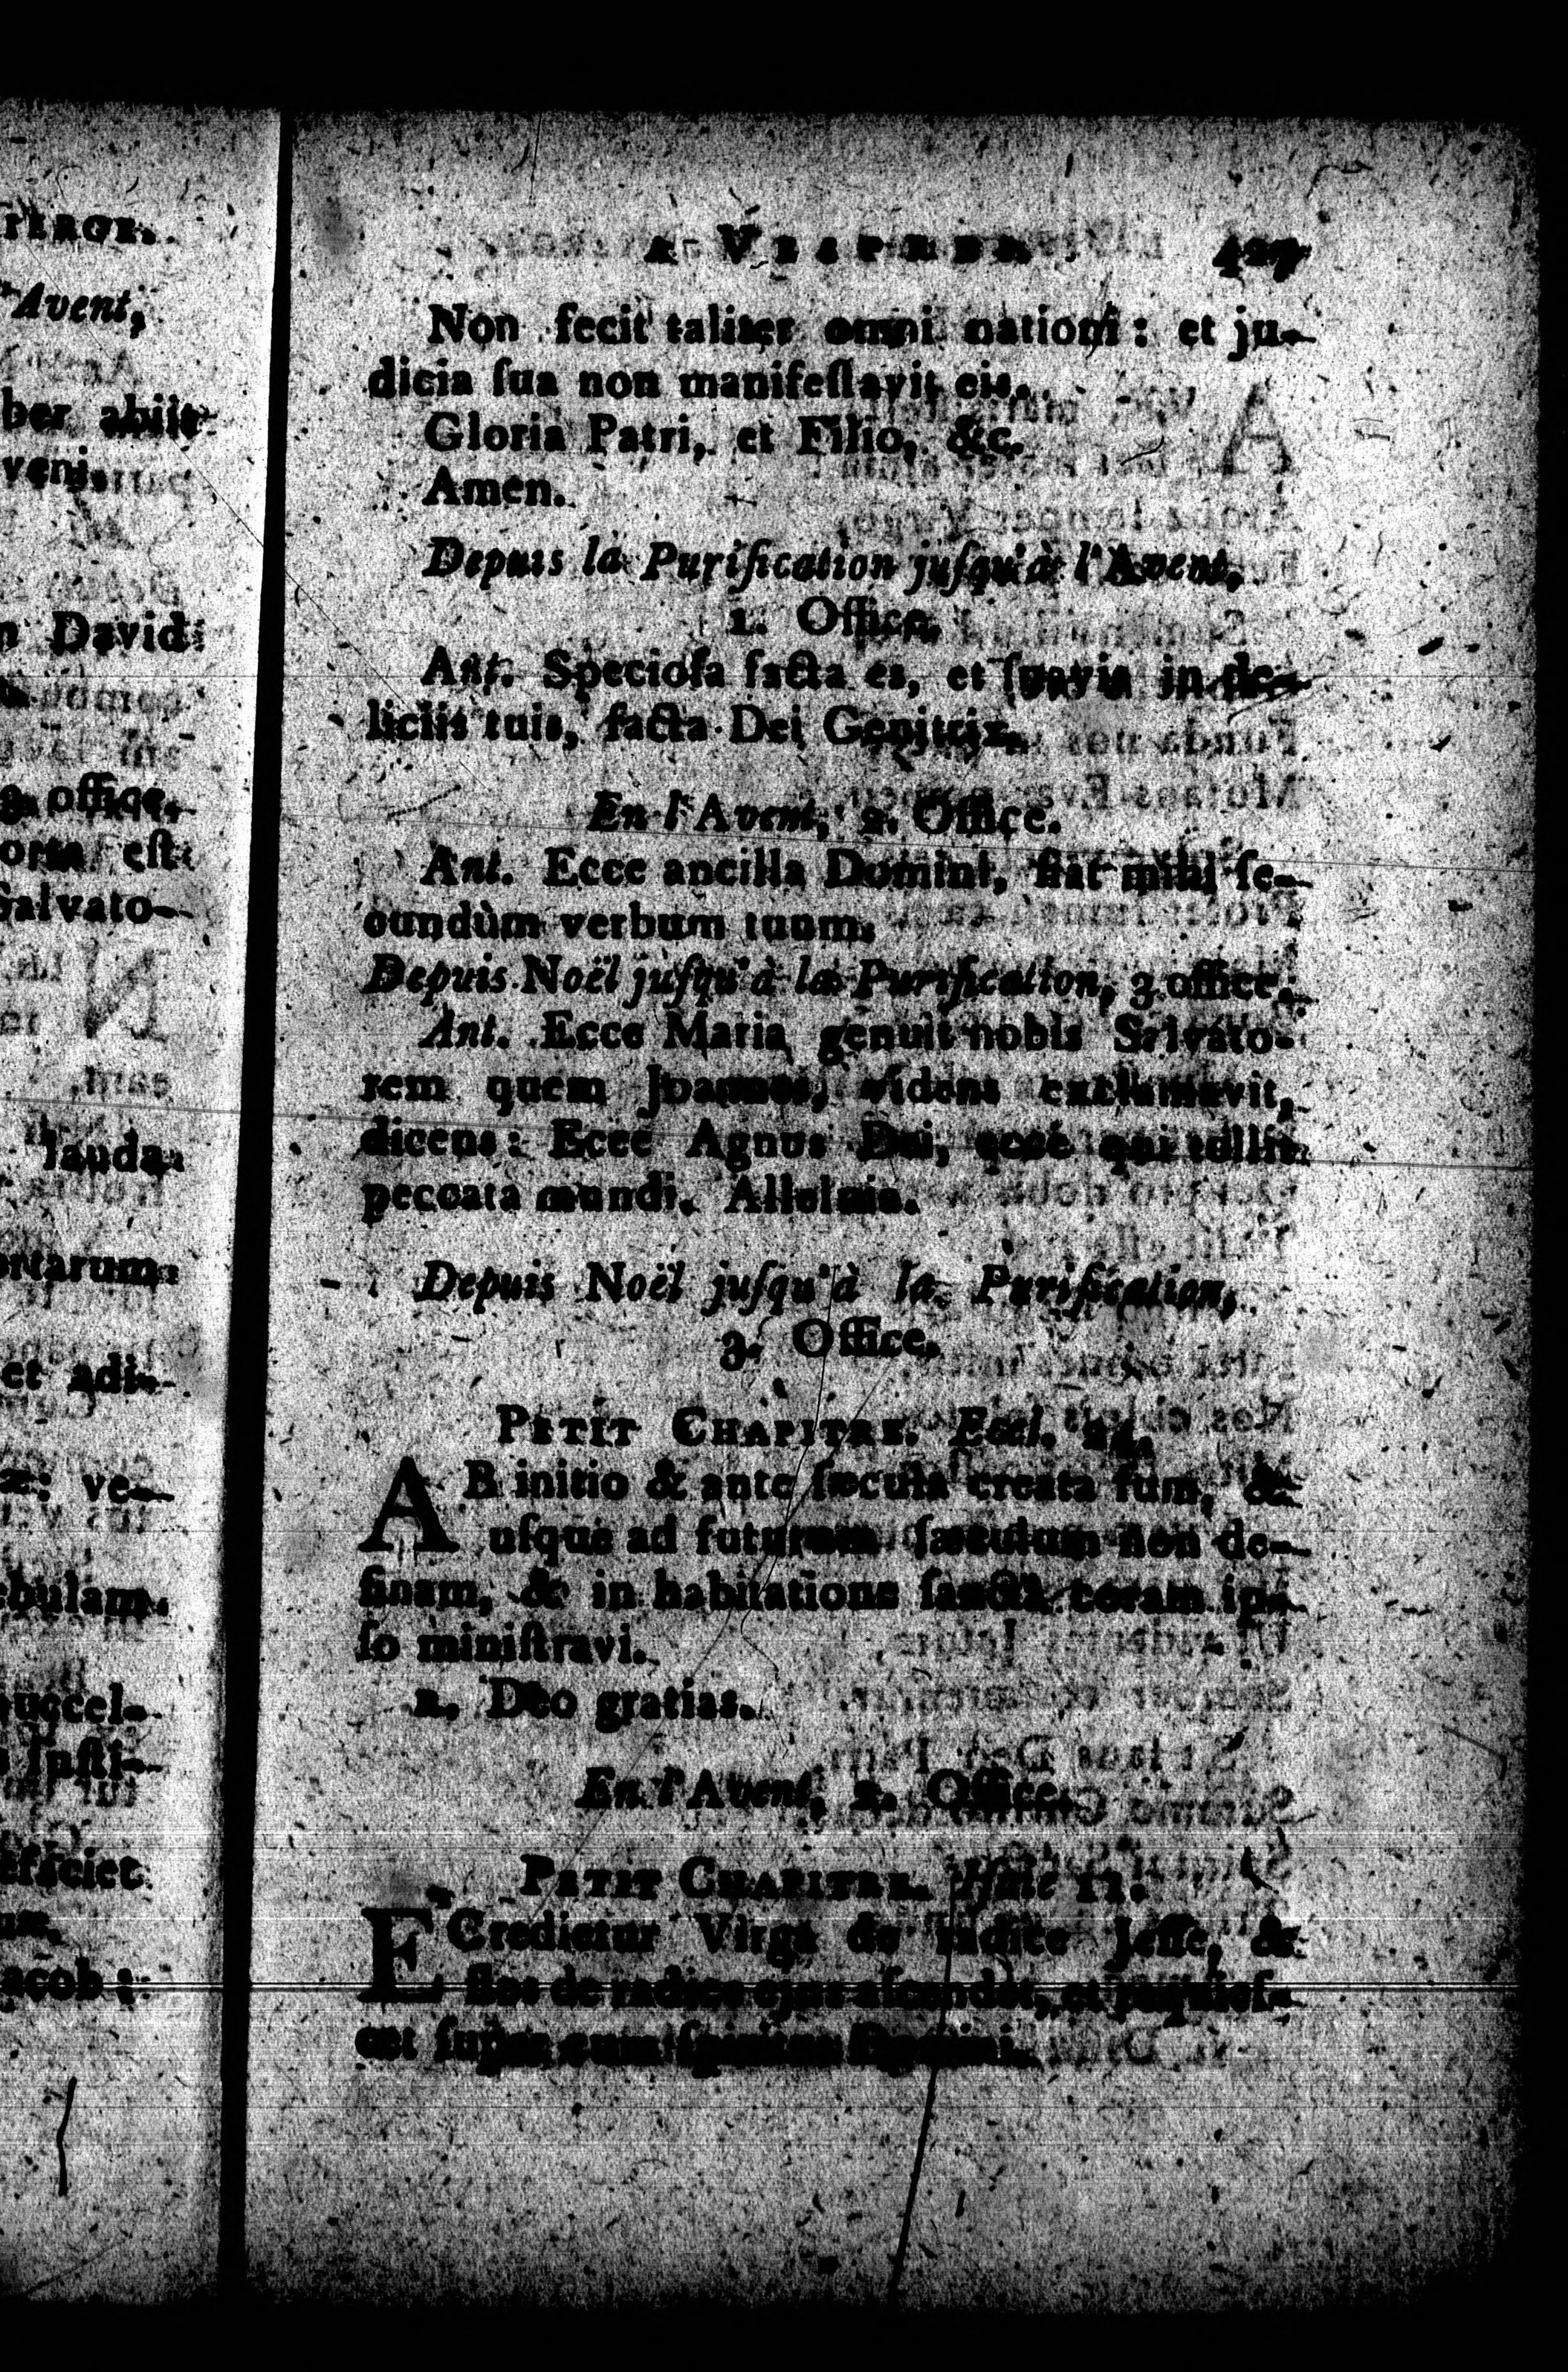 IERGE.
Avent,
ber abiit
veni.
n David
3 office.
orta eſt
Salvato-
lauda
ortarum
et adi-
æ: ve-
ebulam
buccel-
ſuſti-
acob :
A VESPRES. 427
Non fecit taliter omni nationi : et ju-
dicia ſua non manifeſtavit eis.
Gloria Patri, et Filio, &c.
Amen.
Depuis la Purification juſqu'à l'Avent,
1. Office.
Ant. Specioſa facta es, et ſuavis in de-
liciis tuis, ſacta Dei Genitrix.
En l'Avent, 2. Office.
Ant. Ecce ancilla Domini, fiat mihi ſe-
cundùm verbum tuum.
Depuis Noël juſqu'à la Purification, 3 office.
Ant. Ecce Maria genuit nobis Salvato-
rem quem Joannes, videns exclamavit,
dicens : Ecce Agnus Dei, ecce qui tollit
peccata mundi. Alleluia.
Depuis Noël juſqu'à la Purification,
3. Office.
PETIT CHAPITRE. Eccl. 24.
AB initio & ante ſæcula creata ſum, &
uſque ad futurum ſæculum non de-
ſinam, & in habitatione ſanctâ coram ip-
ſo miniſtravi.
R. Deo gratias.
En l'Avent, 2. Office.
PETIT CHAPITRE. Iſaïe 11.
EGredietur Virga de radice Jeſſe, &
flos de radice ejus aſcendet, et requieſ-
cet ſuper eum ſpiritus Domini.